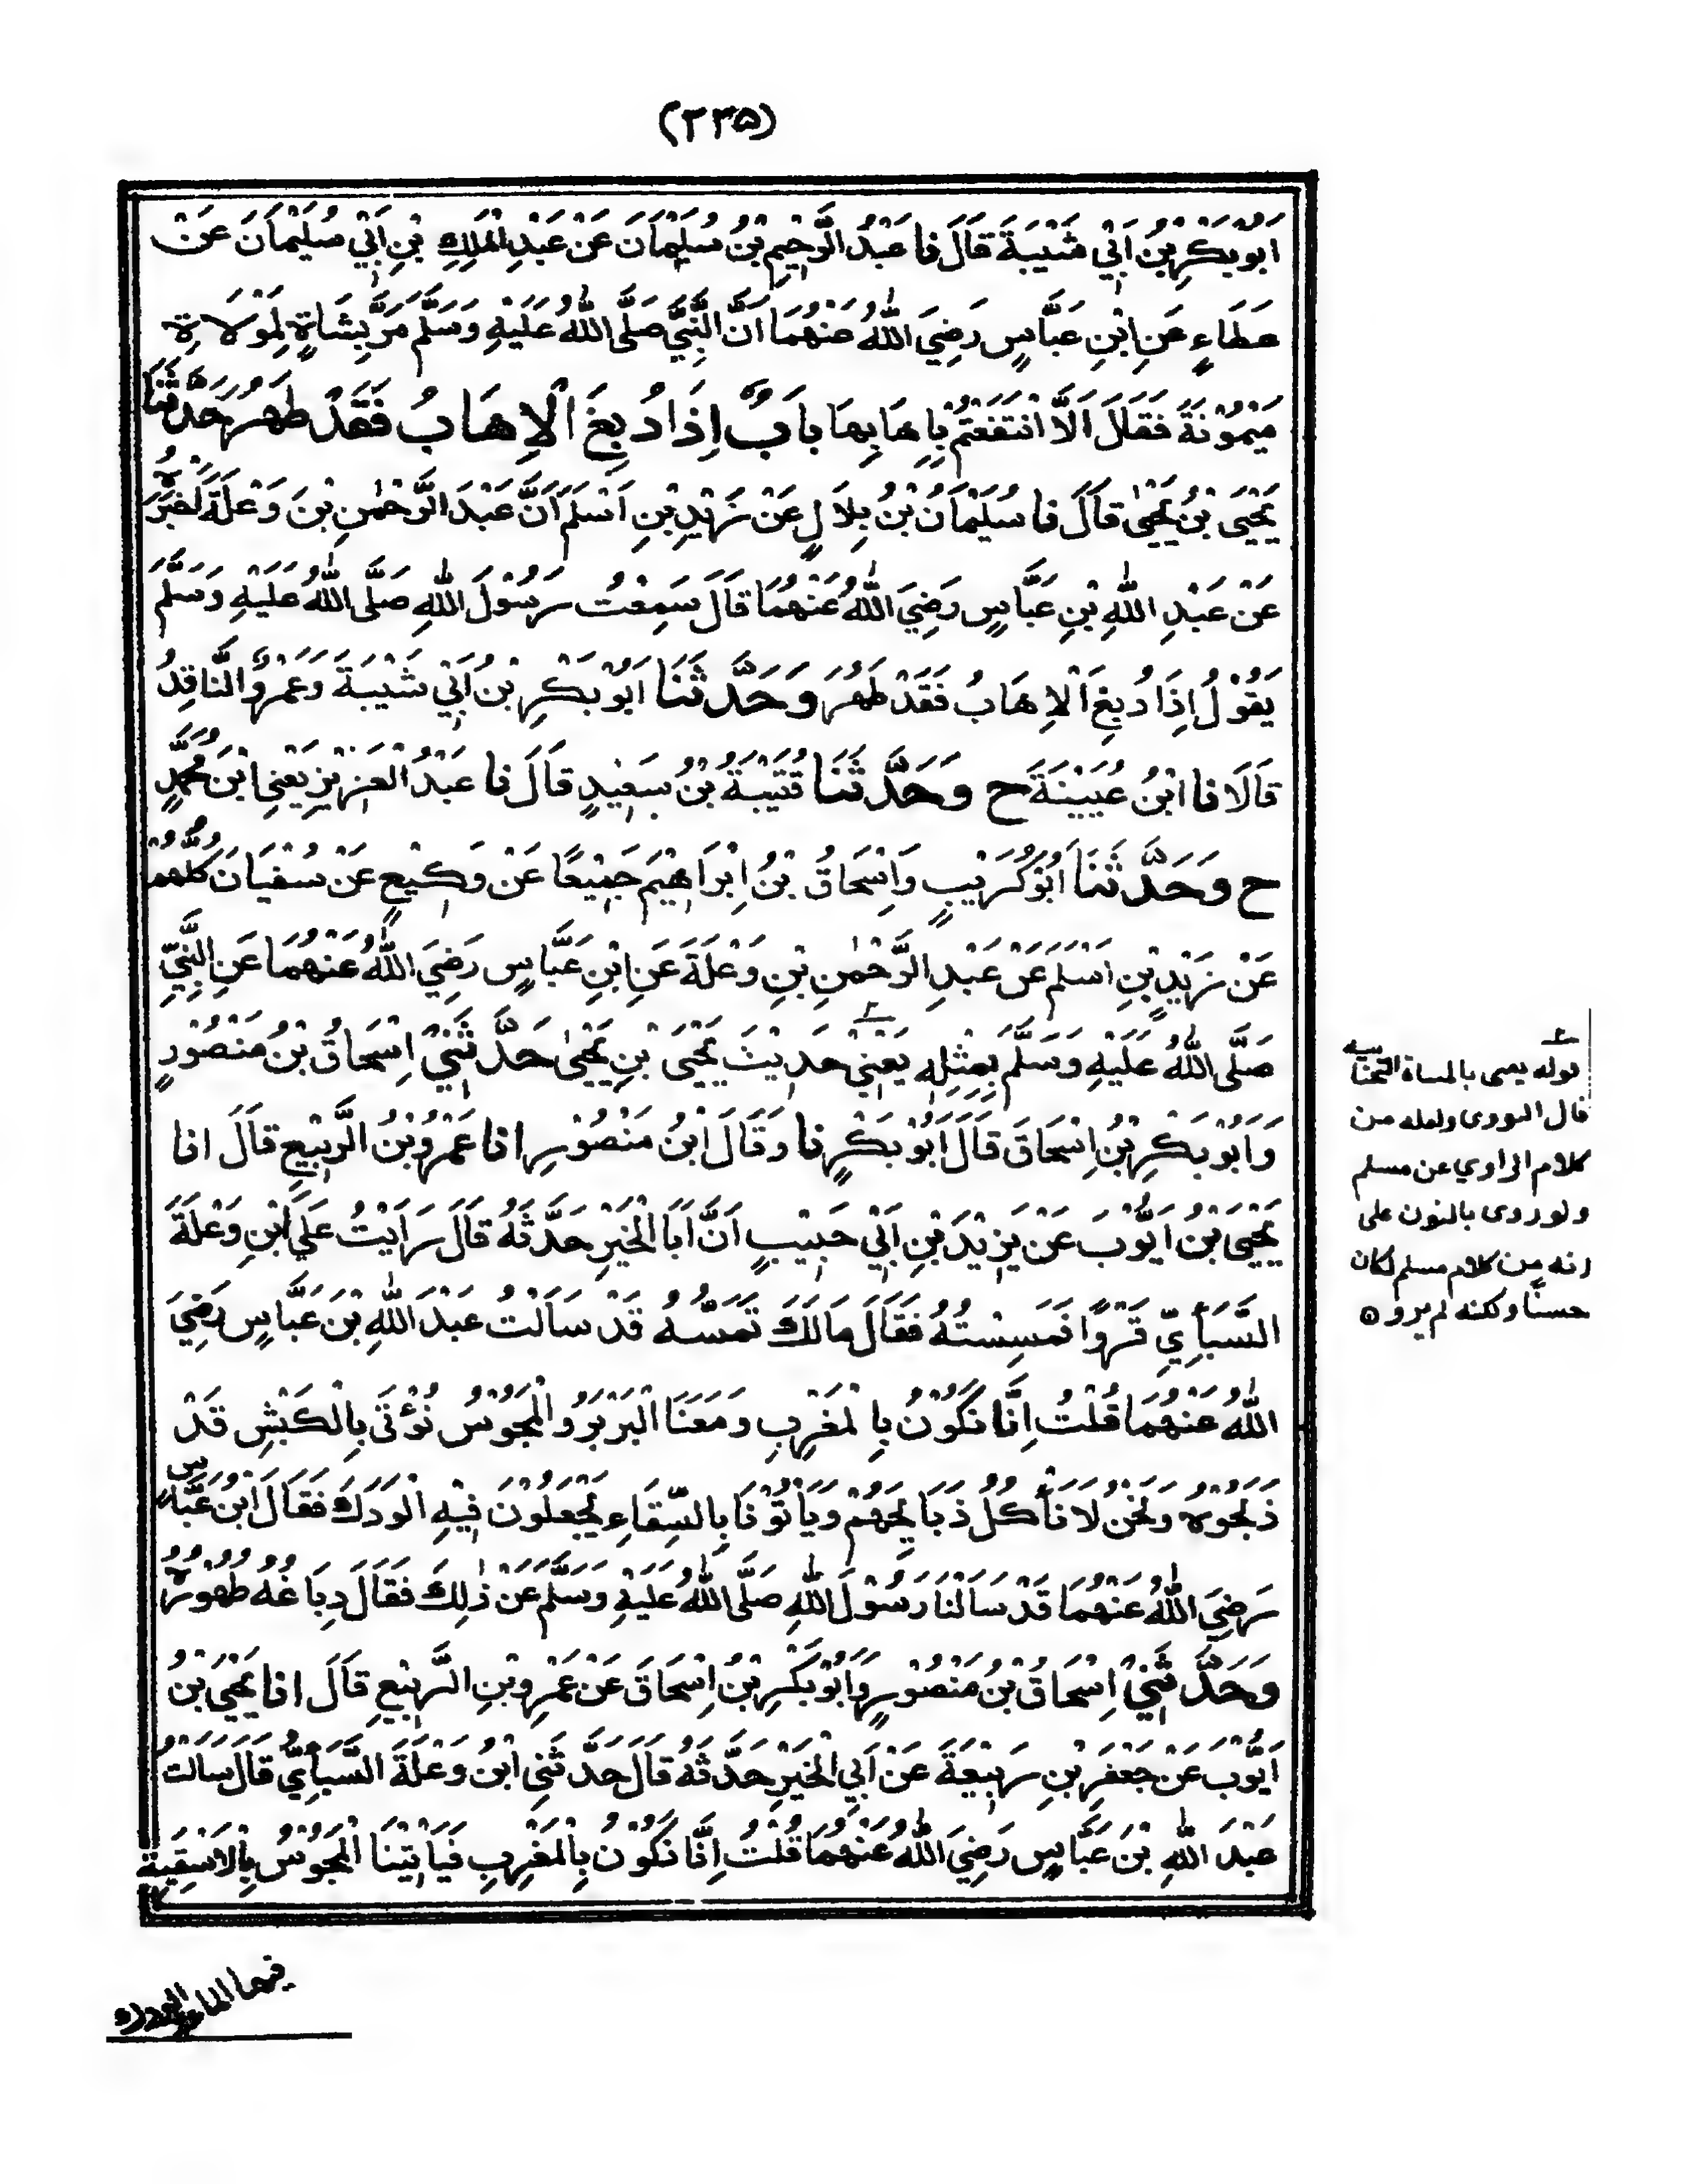 (٣٣۵)
اَبُوْبَكْرِ بْنُ اَبِيْ شَيْبَةَ قَالَ نا عَبْدُ الرَّحِيْمِ بْنُ سُلَيْمَانَ عَنْ عَبْدِ الْمَلِكِ بْنِ اَبِيْ سُلَيْمَانَ عَنْ
عَطَاءٍ عَنِ ابْنِ عَبَّاسٍ رَضِيَ اللّٰهُ عَنْهُمَا اَنَّ النَّبِيَّ صَلَّى اللّٰهُ عَلَيْهِ وَسَلَّمَ مَرَّ بِشَاةٍ لِمَوْلَاةٍ
مَيْمُوْنَةَ فَقَالَ اَلَّا انْتَفَعْتُمْ بِاِهَابِهَا بَابٌ اِذَا دُبِغَ الْاِهَابُ فَقَدْ طَهُرَ حَدَّثَنَا
يَحْيَى بْنُ يَحْيٰى قَالَ نا سُلَيْمَانُ بْنُ بِلَالٍ عَنْ زَيْدِ بْنِ اَسْلَمَ اَنَّ عَبْدَ الرَّحْمٰنِ بْنَ وَعْلَةَ اَخْبَرَهُ
عَنْ عَبْدِ اللّٰهِ بْنِ عَبَّاسٍ رَضِيَ اللّٰهُ عَنْهُمَا قَالَ سَمِعْتُ رَسُوْلَ اللّٰهِ صَلَّى اللّٰهُ عَلَيْهِ وَسَلَّمَ
يَقُوْلُ اِذَا دُبِغَ الْاِهَابُ فَقَدْ طَهُرَ وَحَدَّثَنَا اَبُوْبَكْرِ بْنُ اَبِيْ شَيْبَةَ وَعَمْرٌو النَّاقِدُ
قَالَا نا ابْنُ عُيَيْنَةَ ح وَحَدَّثَنَا قُتَيْبَةُ بْنُ سَعِيْدٍ قَالَ نا عَبْدُ الْعَزِيْزِ يَعْنِى ابْنَ مُحَمَّدٍ
ح وَحَدَّثَنَا اَبُوْ كُرَيْبٍ وَاِسْحَاقُ بْنُ اِبْرَاهِيْمَ جَمِيْعًا عَنْ وَكِيْعٍ عَنْ سُفْيَانَ كُلُّهُمْ
عَنْ زَيْدِ بْنِ اَسْلَمَ عَنْ عَبْدِ الرَّحْمٰنِ بْنِ وَعْلَةَ عَنِ ابْنِ عَبَّاسٍ رَضِيَ اللّٰهُ عَنْهُمَا عَنِ النَّبِيِّ
صَلَّى اللّٰهُ عَلَيْهِ وَسَلَّمَ بِمِثْلِهِ يَعْنِيْ حَدِيْثَ يَحْيَى بْنِ يَحْيٰى حَدَّثَنِيْ اِسْحَاقُ بْنُ مَنْصُوْرٍ
وَاَبُوْبَكْرِ بْنُ اِسْحَاقَ قَالَ اَبُوْ بَكْرٍ نا وَقَالَ ابْنُ مَنْصُوْرٍ انا عَمْرُو بْنُ الرَّبِيْعِ قَالَ انا
يَحْيَى بْنُ اَيُّوْبَ عَنْ يَزِيْدَ بْنِ اَبِيْ حَبِيْبٍ اَنَّ اَبَا الْخَيْرِ حَدَّثَهُ قَالَ رَاَيْتُ عَلَى ابْنِ وَعْلَةَ
السَّبَأِيِّ فَرْوًا فَمَسِسْتُهُ فَقَالَ مَالَكَ تَمَسُّهُ قَدْ سَاَلْتُ عَبْدَ اللّٰهِ بْنَ عَبَّاسٍ رَضِيَ
اللّٰهُ عَنْهُمَا قُلْتُ اِنَّا نَكُوْنُ بِالْمَغْرِبِ وَمَعَنَا الْبَرْبَرُ وَالْمَجُوْسُ نُؤْتَى بِالْكَبْشِ قَدْ
ذَبَحُوْهُ وَنَحْنُ لَا نَأْكُلُ ذَبَايِحَهُمْ وَيَاْتُوْنَا بِالسِّقَاءِ يَجْعَلُوْنَ فِيْهِ الْوَدَكَ فَقَالَ ابْنُ عَبَّاسٍ
رَضِيَ اللّٰهُ عَنْهُمَا قَدْ سَاَلْنَا رَسُوْلَ اللّٰهِ صَلَّى اللّٰهُ عَلَيْهِ وَسَلَّمَ عَنْ ذٰلِكَ فَقَالَ دِبَاغُهُ طَهُوْرُهُ
وَحَدَّثَنِيْ اِسْحَاقُ بْنُ مَنْصُوْرٍ وَاَبُوْبَكْرِ بْنُ اِسْحَاقَ عَنْ عَمْرِو بْنِ الرَّبِيْعِ قَالَ انا يَحْيَى بْنُ
اَيُّوْبَ عَنْ جَعْفَرِ بْنِ رَبِيْعَةَ عَنْ اَبِي الْخَيْرِ حَدَّثَهُ قَالَ حَدَّثَنِى ابْنُ وَعْلَةَ السَّبَأِيُّ قَالَ سَاَلْتُ
عَبْدَ اللّٰهِ بْنَ عَبَّاسٍ رَضِيَ اللّٰهُ عَنْهُمَا قُلْتُ اِنَّا نَكُوْنُ بِالْمَغْرِبِ فَيَاْتِيْنَا الْمَجُوْسُ بِالْاَسْقِيَةِ
فيها الماء والودك
قوله يعنى بالمثناة التحتانية
قال النووى ولعله من
كلام الراوي عن مسلم
ولو روى بالنون على
انه من كلام مسلم لكان
حسنا ولكنه لم يرو